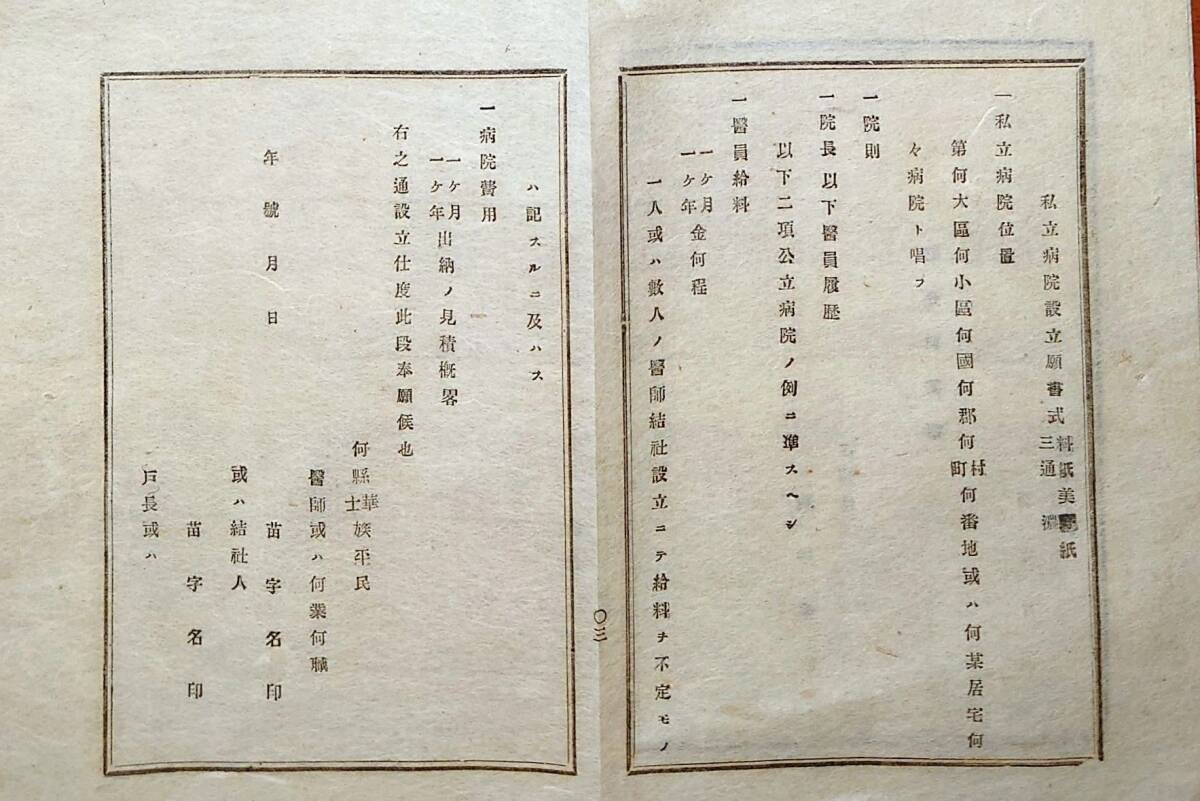 私立病院設立願書式料紙美濃紙三通
一私立病院位置
第何大區何小區何國何郡何村町何番地或ハ何某居宅何
々病院ト唱フ
一院則
一院長以下醫員履歴
以下二項公立病院ノ例ニ準スヘシ
一醫員給料
一ケ月一ケ年金何程
一人或ハ數人ノ醫師結社設立ニテ給料ヲ不定モノ
〇三
ハ記スルニ及ハス
一病院費用
一ケ月一ケ年出納ノ見積概畧
右之通設立仕度此段奉願候也
年號月日
何縣華士族平民
醫師或ハ何業何職
苗字名印
或ハ結社人
苗字名印
戸長或ハ